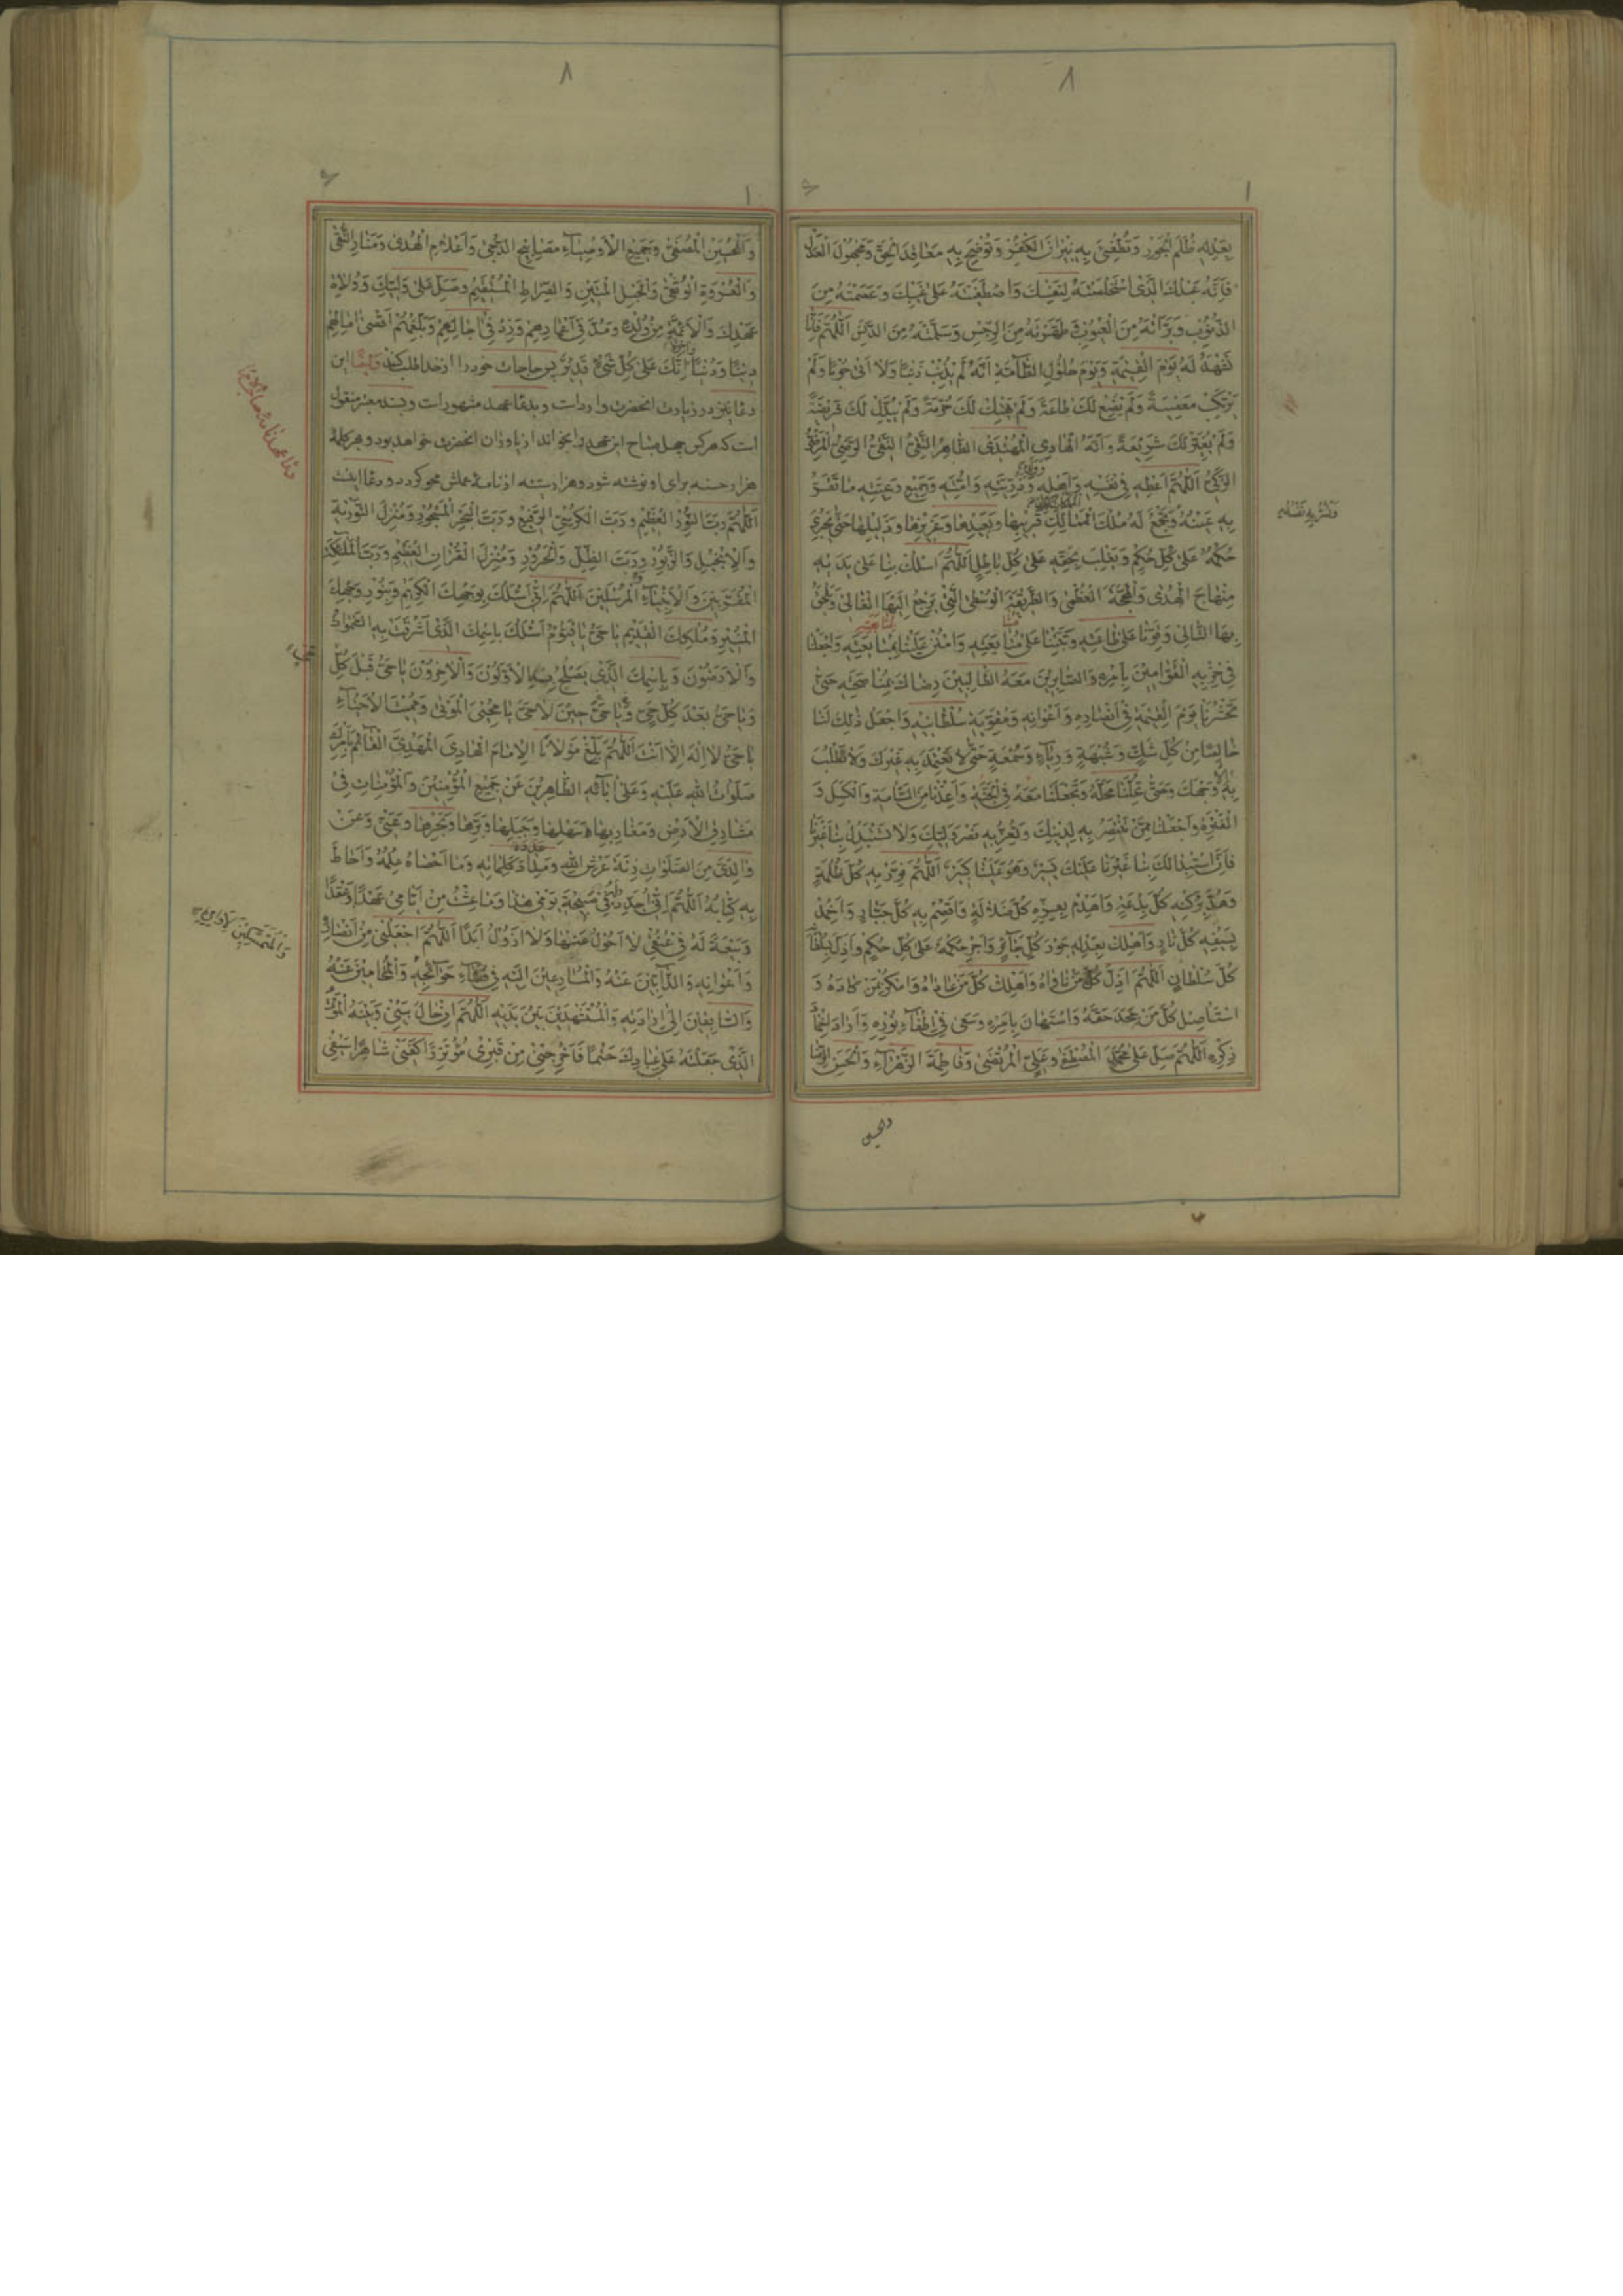 ٨
١
بِعَدْلِهِ ظُلَمَ الْجَوْرِ وَتُطْفِئَ بِهِ نِيرَانَ الْكُفْرِ وَتُوضِحَ بِهِ مَعَاقِدَ الْحَقِّ وَمَجْهُولَ الْعَدْلِ
فَإِنَّهُ عَبْدُكَ الَّذِي اسْتَخْلَصْتَهُ لِنَفْسِكَ وَاصْطَفَيْتَهُ عَلَى غَيْبِكَ وَعَصَمْتَهُ مِنَ
الذُّنُوبِ وَبَرَّأْتَهُ مِنَ الْعُيُوبِ وَطَهَّرْتَهُ مِنَ الرِّجْسِ وَسَلَّمْتَهُ مِنَ الدَّنَسِ اللَّهُمَّ فَإِنَّا
نَشْهَدُ لَهُ يَوْمَ الْقِيمَةِ وَيَوْمَ حُلُولِ الطَّآمَّةِ أَنَّهُ لَمْ يُذْنِبْ ذَنْبًا وَلَا أَتَى حُوبًا وَلَمْ
يَرْتَكِبْ مَعْصِيَةً وَلَمْ يُضِعْ لَكَ طَاعَةً وَلَمْ يَهْتِكْ لَكَ حُرْمَةً وَلَمْ يُبَدِّلْ لَكَ فَرِيضَةً
وَلَمْ يُغَيِّرْ لَكَ شَرِيعَةً وَأَنَّهُ الْهَادِي الْمُهْتَدِي الطَّاهِرُ التَّقِيُّ النَّقِيُّ الرَّضِيُّ الْمَرْضِيُّ
الزَّكِيُّ اللَّهُمَّ أَعْطِهِ فِي نَفْسِهِ وَأَهْلِهِ وَذُرِّيَّتِهِ وَأُمَّتِهِ وَجَمِيعِ رَعِيَّتِهِ مَا تُقِرُّ
بِهِ عَيْنَهُ وَتَجْمَعُ لَهُ مُلْكَ الْمَمَالِكَ قَرِيبِهَا وَبَعِيدِهَا وَعَزِيزِهَا وَذَلِيلِهَا حَتَّى يَجْرِيَ
حُكْمُهُ عَلَى كُلِّ حُكْمٍ وَيَغْلِبَ بِحَقِّهِ عَلَى كُلِّ بَاطِلٍ اللَّهُمَّ اسْلُكْ بِنَا عَلَى يَدَيْهِ
مِنْهَاجَ الْهُدَى وَالْمَحَجَّةَ الْعُظْمَى وَالطَّرِيقَةَ الْوُسْطَى الَّتِي يَرْجِعُ إِلَيْهَا الْغَالِي وَيَلْحَقُ
بِهَا التَّالِي وَقَوِّنَا عَلَى طَاعَتِهِ وَثَبِّتْنَا عَلَى مُشَايَعَتِهِ وَامْنُنْ عَلَيْنَا بِمُتَابَعَتِهِ وَاجْعَلْنَا
فِي حِزْبِهِ الْقَوَّامِينَ بِأَمْرِهِ وَالصَّابِرِينَ مَعَهُ الطَّالِبِينَ رِضَاكَ بِمُنَاصَحَتِهِ حَتَّى
تَحْشُرَنَا يَوْمَ الْقِيمَةِ فِي أَنْصَارِهِ وَأَعْوَانِهِ وَمُقَوِّيَةِ سُلْطَانِهِ وَاجْعَلْ ذَلِكَ لَنَا
خَالِصًا مِنْ كُلِّ شَكٍّ وَشُبْهَةٍ وَرِيَآءٍ وَسُمْعَةٍ حَتَّى لَا نَعْتَمِدَ بِهِ غَيْرَكَ وَلَا نَطْلُبَ
بِهِ إِلَّا وَجْهَكَ وَحَتَّى تُحِلَّنَا مَحَلَّهُ وَتَجْعَلَنَا مَعَهُ فِي الْجَنَّةِ وَأَعِذْنَا مِنَ السَّآمَةِ وَالْكَسَلِ وَ
الْفَتْرَةِ وَاجْعَلْنَا مِمَّنْ تَنْتَصِرُ بِهِ لِدِينِكَ وَتُعِزُّ بِهِ نَصْرَ وَلِيِّكَ وَلَا تَسْتَبْدِلْ بِنَا غَيْرَنَا
فَإِنَّ اسْتِبْدَالَكَ بِنَا غَيْرَنَا عَلَيْكَ يَسِيرٌ وَهُوَ عَلَيْنَا كَبِيرٌ اللَّهُمَّ نَوِّرْ بِهِ كُلَّ ظُلْمَةٍ
وَهُدَّ بِرُكْنِهِ كُلَّ بِدْعَةٍ وَاهْدِمْ بِعِزِّهِ كُلَّ ضَلَالَةٍ وَاقْصِمْ بِهِ كُلَّ جَبَّارٍ وَأَخْمِدْ
بِسَيْفِهِ كُلَّ نَارٍ وَأَهْلِكْ بِعَدْلِهِ جَوْرَ كُلِّ جَآئِرٍ وَأَجْرِ حُكْمَهُ عَلَى كُلِّ حُكْمٍ وَأَذِلَّ بِسُلْطَانِهِ
كُلَّ سُلْطَانٍ اللَّهُمَّ أَذِلَّ كُلَّ مَنْ نَاوَاهُ وَأَهْلِكْ كُلَّ مَنْ عَادَاهُ وَامْكُرْ بِمَنْ كَادَهُ وَ
اسْتَأْصِلْ كُلَّ مَنْ جَحَدَ حَقَّهُ وَاسْتَهَانَ بِأَمْرِهِ وَسَعَى فِي إِطْفَآءِ نُورِهِ وَأَرَادَ إِخْمَادَ
ذِكْرِهِ اللَّهُمَّ صَلِّ عَلَى مُحَمَّدٍ الْمُصْطَفَى وَعَلِيٍّ الْمُرْتَضَى وَفَاطِمَةَ الزَّهْرَآءِ وَالْحَسَنِ الرِّضَا
والحسین
٨
١
وَالْحُسَيْنِ الْمُصَفَّى وَجَمِيعِ الْأَوْصِيَآءِ مَصَابِيحِ الدُّجَى وَأَعْلَامِ الْهُدَى وَمَنَارِ التُّقَى
وَالْعُرْوَةِ الْوُثْقَى وَالْحَبْلِ الْمَتِينِ وَالصِّرَاطِ الْمُسْتَقِيمِ وَصَلِّ عَلَى وَلِيِّكَ وَوُلَاةِ
عَهْدِكَ وَالْأَئِمَّةِ مِنْ وُلْدِهِ وَمُدَّ فِي أَعْمَارِهِمْ وَزِدْ فِي آجَالِهِمْ وَبَلِّغْهُمْ أَقْصَى آمَالِهِمْ
دِينًا وَدُنْيًا إِنَّكَ عَلَى كُلِّ شَيْءٍ قَدِيرٌ پس حاجات خود را از خدا طلب کند وایضًا این
دعا نیز در زیارت انحضرت وارد است و بدعا عهد مشهور است و بسند معتبر منقول
است که هر کس چهل صباح این عهد را بخواند از یاوران انحضرت خواهد بود و هر کلمهٔ
هزار حسنه برای او نوشته شود و هزار سیئه از نامهٔ عملش محو کردد و دعا اینست
اللَّهُمَّ رَبَّ النُّورِ الْعَظِيمِ وَرَبَّ الْكُرْسِيِّ الرَّفِيعِ وَرَبَّ الْبَحْرِ الْمَسْجُورِ وَمُنْزِلَ التَّوْرَيةِ
وَالْإِنْجِيلِ وَالزَّبُورِ وَرَبَّ الظِّلِّ وَالْحَرُورِ وَمُنْزِلَ الْقُرْآنِ الْعَظِيمِ وَرَبَّ الْمَلَئِكَةِ
الْمُقَرَّبِينَ وَالْأَنْبِيَآءِ وَالْمُرْسَلِينَ اللَّهُمَّ إِنِّي أَسْئَلُكَ بِوَجْهِكَ الْكَرِيمِ وَبِنُورِ وَجْهِكَ
الْمُنِيرِ وَمُلْكِكَ الْقَدِيمِ يَا حَيُّ يَا قَيُّومُ أَسْئَلُكَ بِاسْمِكَ الَّذِي أَشْرَقَتْ بِهِ السَّمَوَاتُ
وَالْأَرَضُونَ وَبِاسْمِكَ الَّذِي يَصْلَحُ بِهِ الْأَوَّلُونَ وَالْآخِرُونَ يَا حَيُّ قَبْلَ كُلِّ
وَيَا حَيُّ بَعْدَ كُلِّ حَيٍّ وَيَا حَيُّ حِينَ لَا حَيَّ يَا مُحْيِيَ الْمَوْتَى وَمُمِيتَ الْأَحْيَآءِ
يَا حَيُّ لَا إِلَهَ إِلَّا أَنْتَ اللَّهُمَّ بَلِّغْ مَوْلَانَا الْإِمَامَ الْهَادِيَ الْمَهْدِيَّ الْقَآئِمَ بِأَمْرِكَ
صَلَوَاتُ اللهِ عَلَيْهِ وَعَلَى آبَآئِهِ الطَّاهِرِينَ عَنْ جَمِيعِ الْمُؤْمِنِينَ وَالْمُؤْمِنَاتِ فِي
مَشَارِقِ الْأَرْضِ وَمَغَارِبِهَا سَهْلِهَا وَجَبَلِهَا وَبَرِّهَا وَبَحْرِهَا وَعَنِّي وَعَنْ
وَالِدَيَّ مِنَ الصَّلَوَاتِ زِنَةَ عَرْشِ اللهِ وَمِدَادَ كَلِمَاتِهِ وَمَا أَحْصَاهُ عِلْمُهُ وَأَحَاطَ
بِهِ كِتَابُهُ اللَّهُمَّ إِنِّي أُجَدِّدُ لَهُ فِي صَبِيحَةِ يَوْمِي هَذَا وَمَا عِشْتُ مِنْ أَيَّامِي عَهْدًا وَعَقْدًا
وَبَيْعَةً لَهُ فِي عُنُقِي لَا أَحُولُ عَنْهَا وَلَا أَزُولُ أَبَدًا اللَّهُمَّ اجْعَلْنِي مِنْ أَنْصَارِهِ
وَأَعْوَانِهِ وَالذَّآبِّينَ عَنْهُ وَالْمُسَارِعِينَ إِلَيْهِ فِي قَضَآءِ حَوَآئِجِهِ وَالْمُحَامِينَ عَنْهُ
وَالسَّابِقِينَ إِلَى إِرَادَتِهِ وَالْمُسْتَشْهَدِينَ بَيْنَ يَدَيْهِ اللَّهُمَّ إِنْ حَالَ بَيْنِي وَبَيْنَهُ الْمَوْتُ
الَّذِي جَعَلْتَهُ عَلَى عِبَادِكَ حَتْمًا فَأَخْرِجْنِي مِنْ قَبْرِي مُؤْتَزِرًا كَفَنِي شَاهِرًا سَيْفِي
وَالْمُمْتَثِلِينَ لِأَوَامِرِهِ